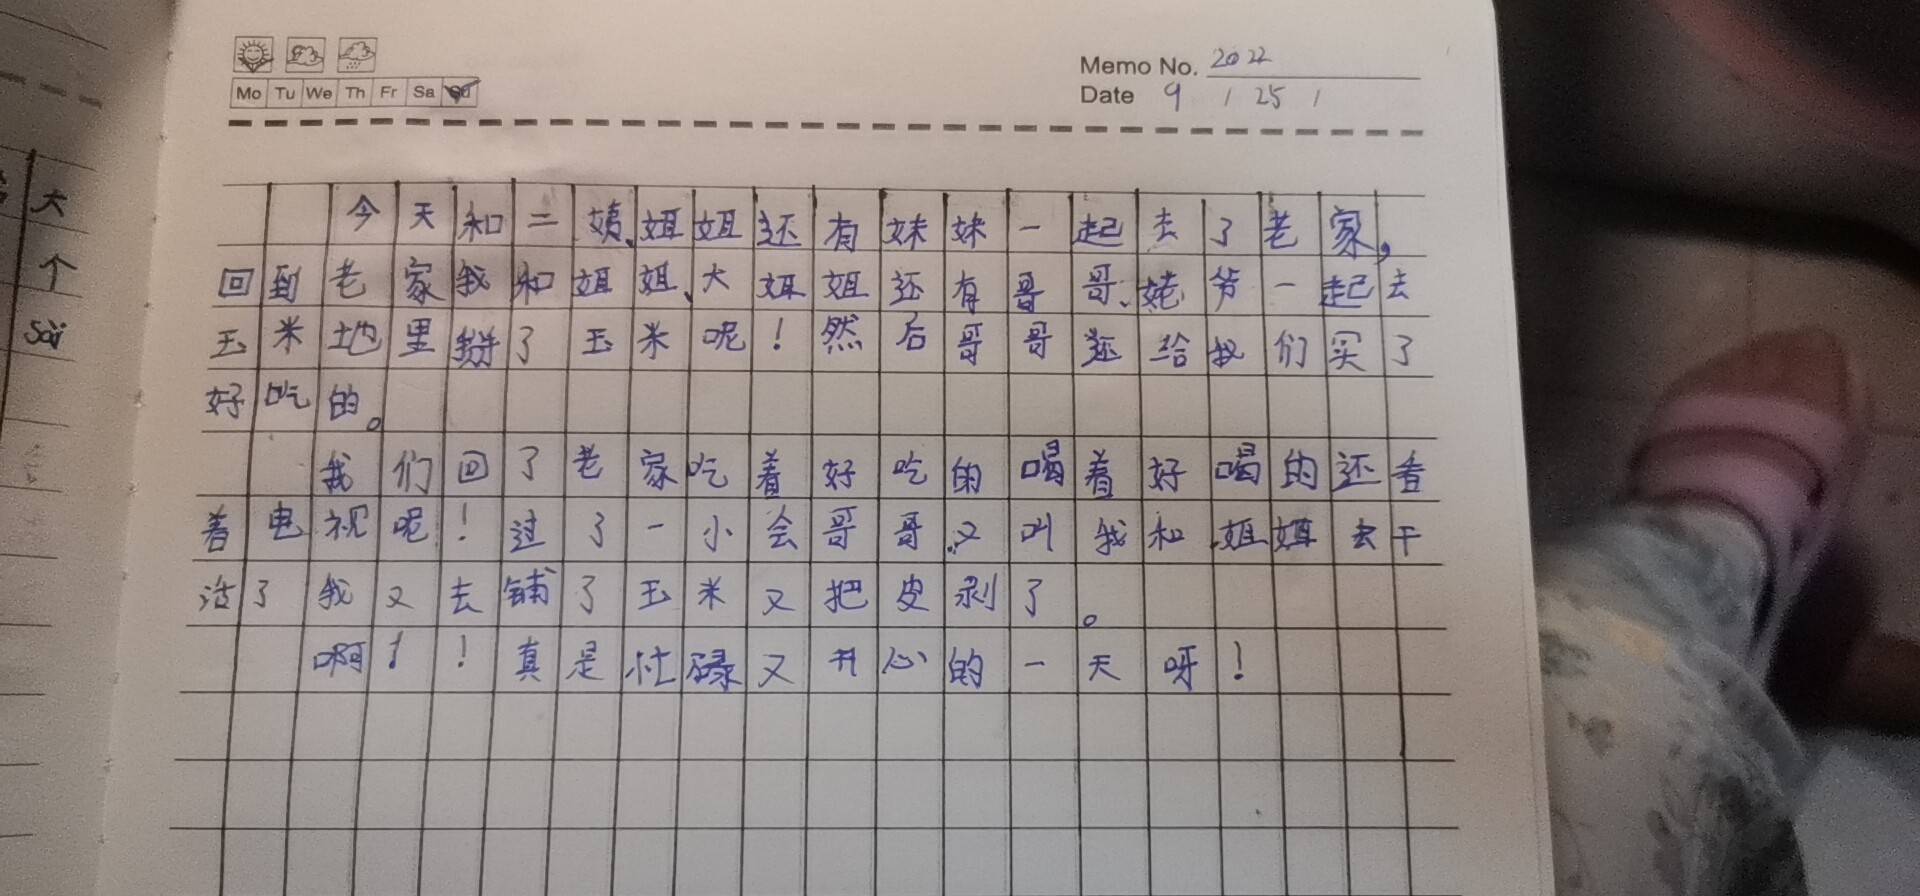 Memo No. 2022
Mo Tu We Th Fr Sa Su
Date 9 / 25 /
今天和二姨、姐姐还有妹妹一起去了老家,
回到老家我和姐姐、大姐姐还有哥哥、姥爷一起去
玉米地里掰了玉米呢！然后哥哥还给我们买了
好吃的。
我们回了老家吃着好吃的喝着好喝的还看
着电视呢！过了一小会哥哥又叫我和姐姐去干
活了我又去铺了玉米又把皮剥了。
啊！！真是忙碌又开心的一天呀！
大
个
sài